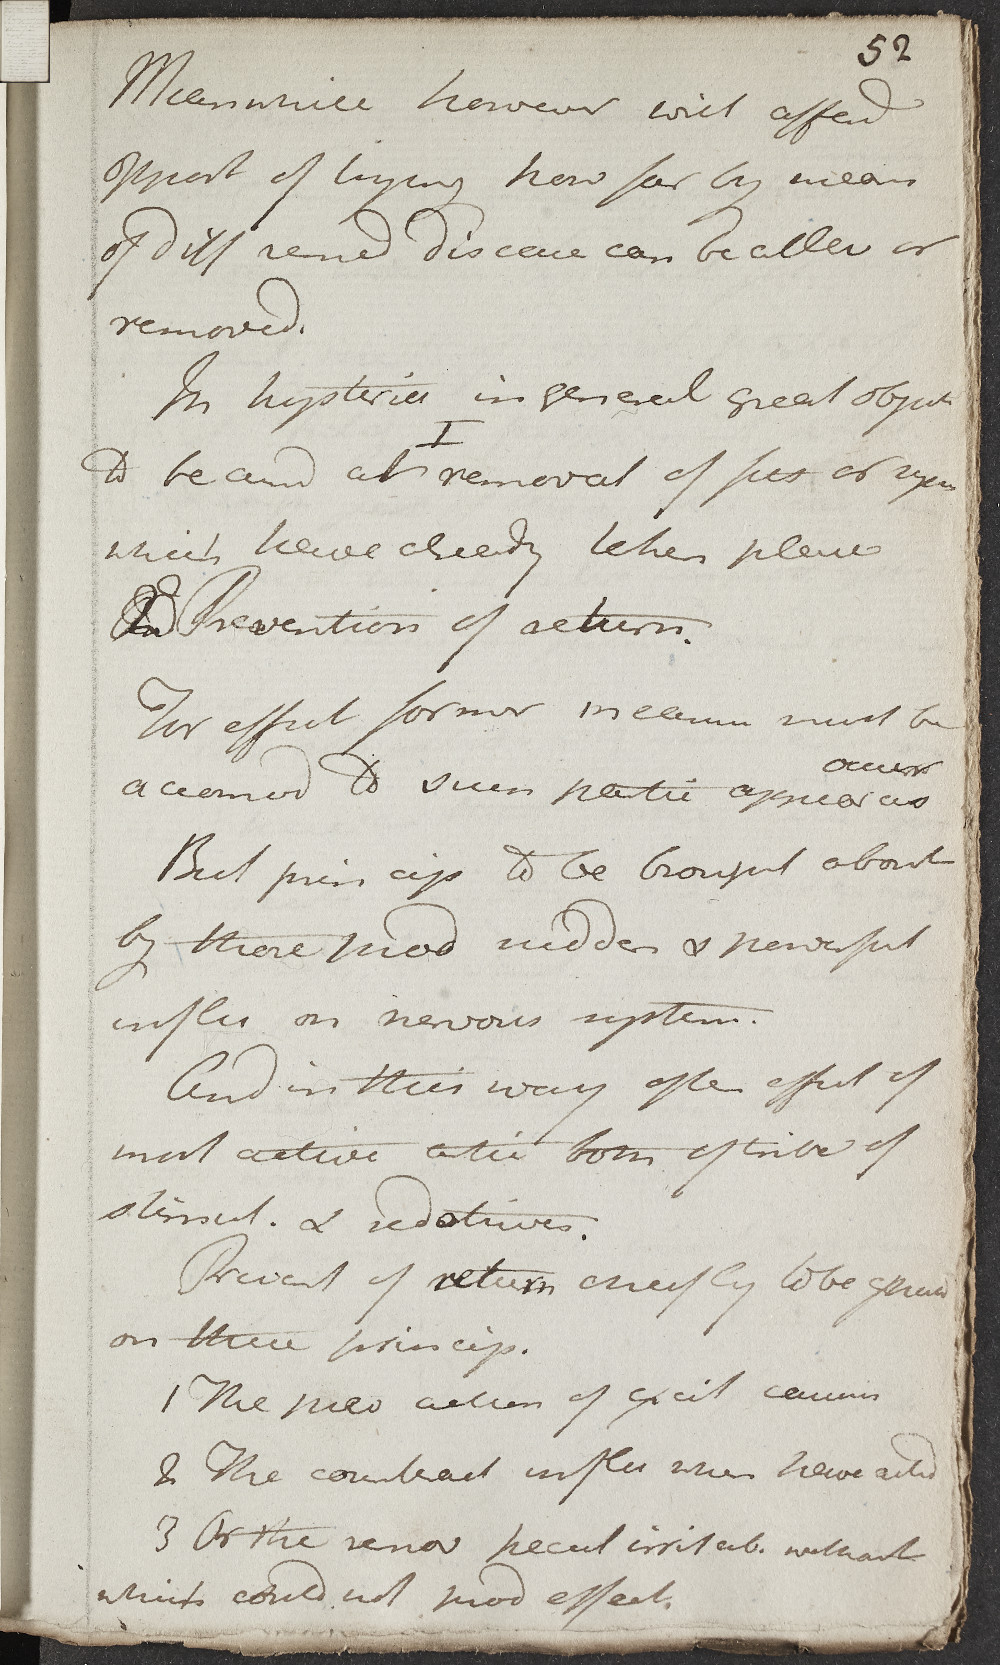 52
Meanwhile however will afford
opport of trying how far by means
of diff remed disease can be allev or
removed.
In hysteria in general great objects
I
to be aimd at removal of fits or sym
which have already taken place
2d Prevention of return.
For effect former measur must be
occurr
accomod to such partic appear as
But princip to be brought about
by those prod sudden & powerful
influ on nervous system.
And in this way often effect of
most active artic both of tribe of
stimul. & sedatives.
Prevent of return chiefly to be ground
on these princip.
1 The prev action of excit causes
2 The counteract influ when have acted
3 Or the remov pecul irritab. without
which could not prod effect.